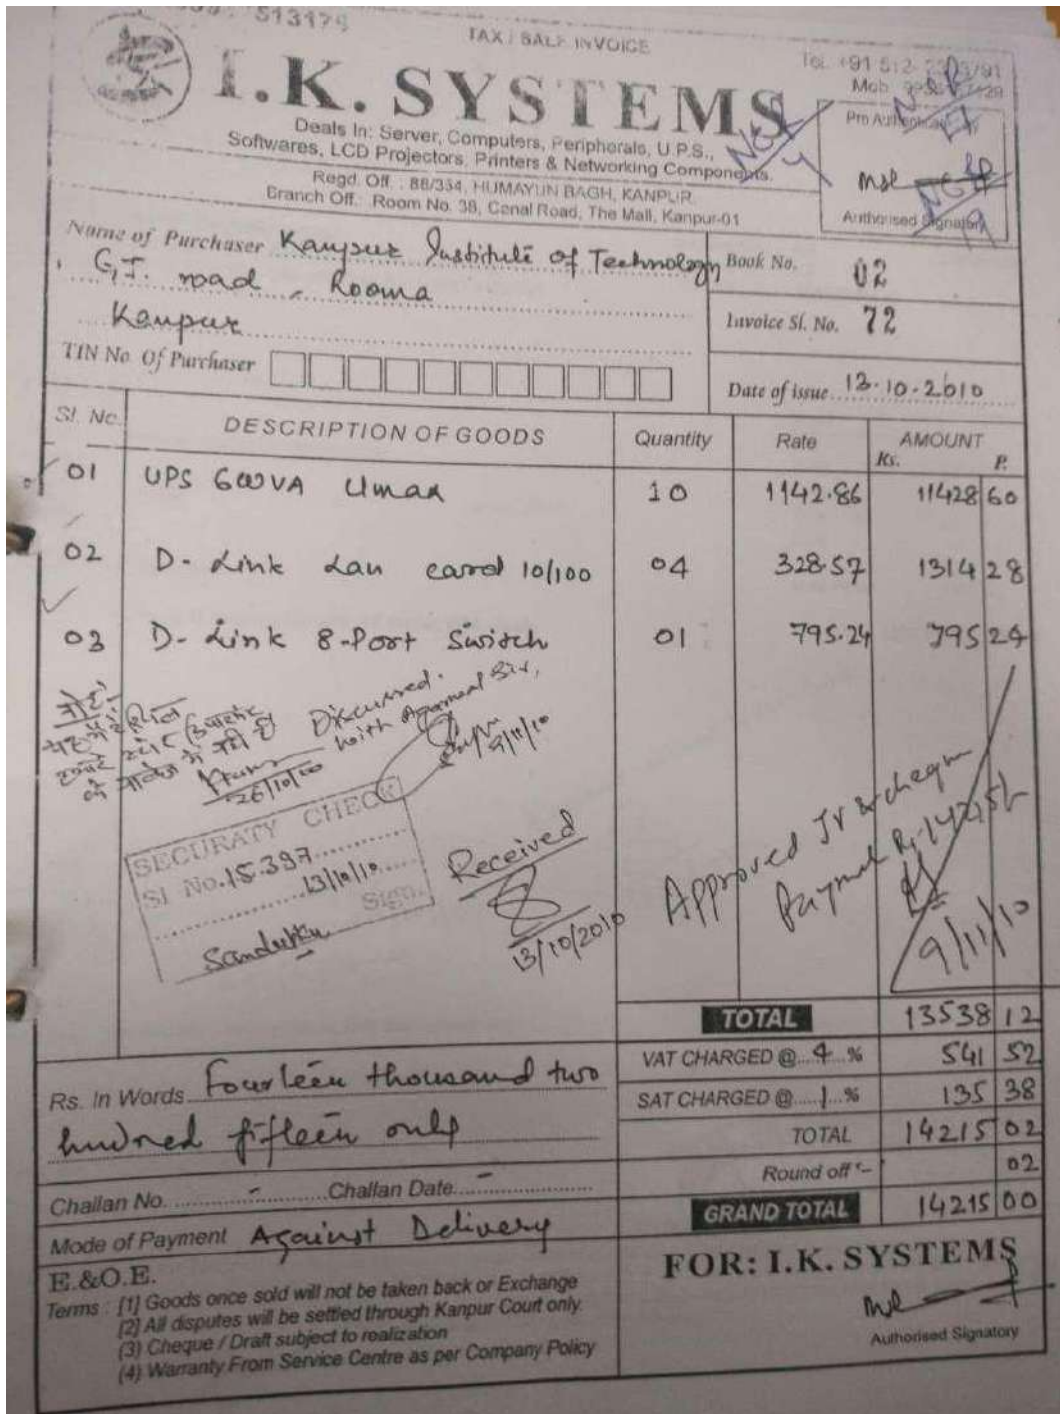 513179
TAX / SALE INVOICE
I.K. SYSTEMS
Deals In: Server, Computers, Peripherals, U.P.S.,
Softwares, LCD Projectors, Printers & Networking Components.
Regd. Off. : 88/354, HUMAYUN BAGH, KANPUR
Branch Off.: Room No. 38, Canal Road, The Mall, Kanpur-01
Tel. +91 512-
Mob.
Authorised Signatory
Name of Purchaser Kanpur Institute of Technology
G.T. road, Rooma
Kanpur
TIN No. Of Purchaser
Book No. 02
Invoice Sl. No. 72
Date of issue 13-10-2010
Sl. No. DESCRIPTION OF GOODS Quantity Rate AMOUNT
Rs. P.
01 UPS 600VA Umax 10 1142.86 11428 60
02 D-Link Lan card 10/100 04 328.57 1314 28
03 D-Link 8-Port Switch 01 795.24 795 24
Discussed.
with Agarwal Sir,
9/11/10
26/10/10
SECURATY CHECK
Sl No. 15397
13/10/10
Sign.
Received
13/10/2010
Approved JV & cheque
Payment
9/11/10
TOTAL 13538 12
VAT CHARGED @ 4 % 541 52
SAT CHARGED @ 1 % 135 38
TOTAL 14215 02
Round off - 02
GRAND TOTAL 14215 00
Rs. In Words Fourteen thousand two
hundred fifteen only
Challan No. - Challan Date -
Mode of Payment Against Delivery
E.&O.E.
Terms : [1] Goods once sold will not be taken back or Exchange
[2] All disputes will be settled through Kanpur Court only.
(3) Cheque / Draft subject to realization
(4) Warranty From Service Centre as per Company Policy
FOR: I.K. SYSTEMS
Authorised Signatory